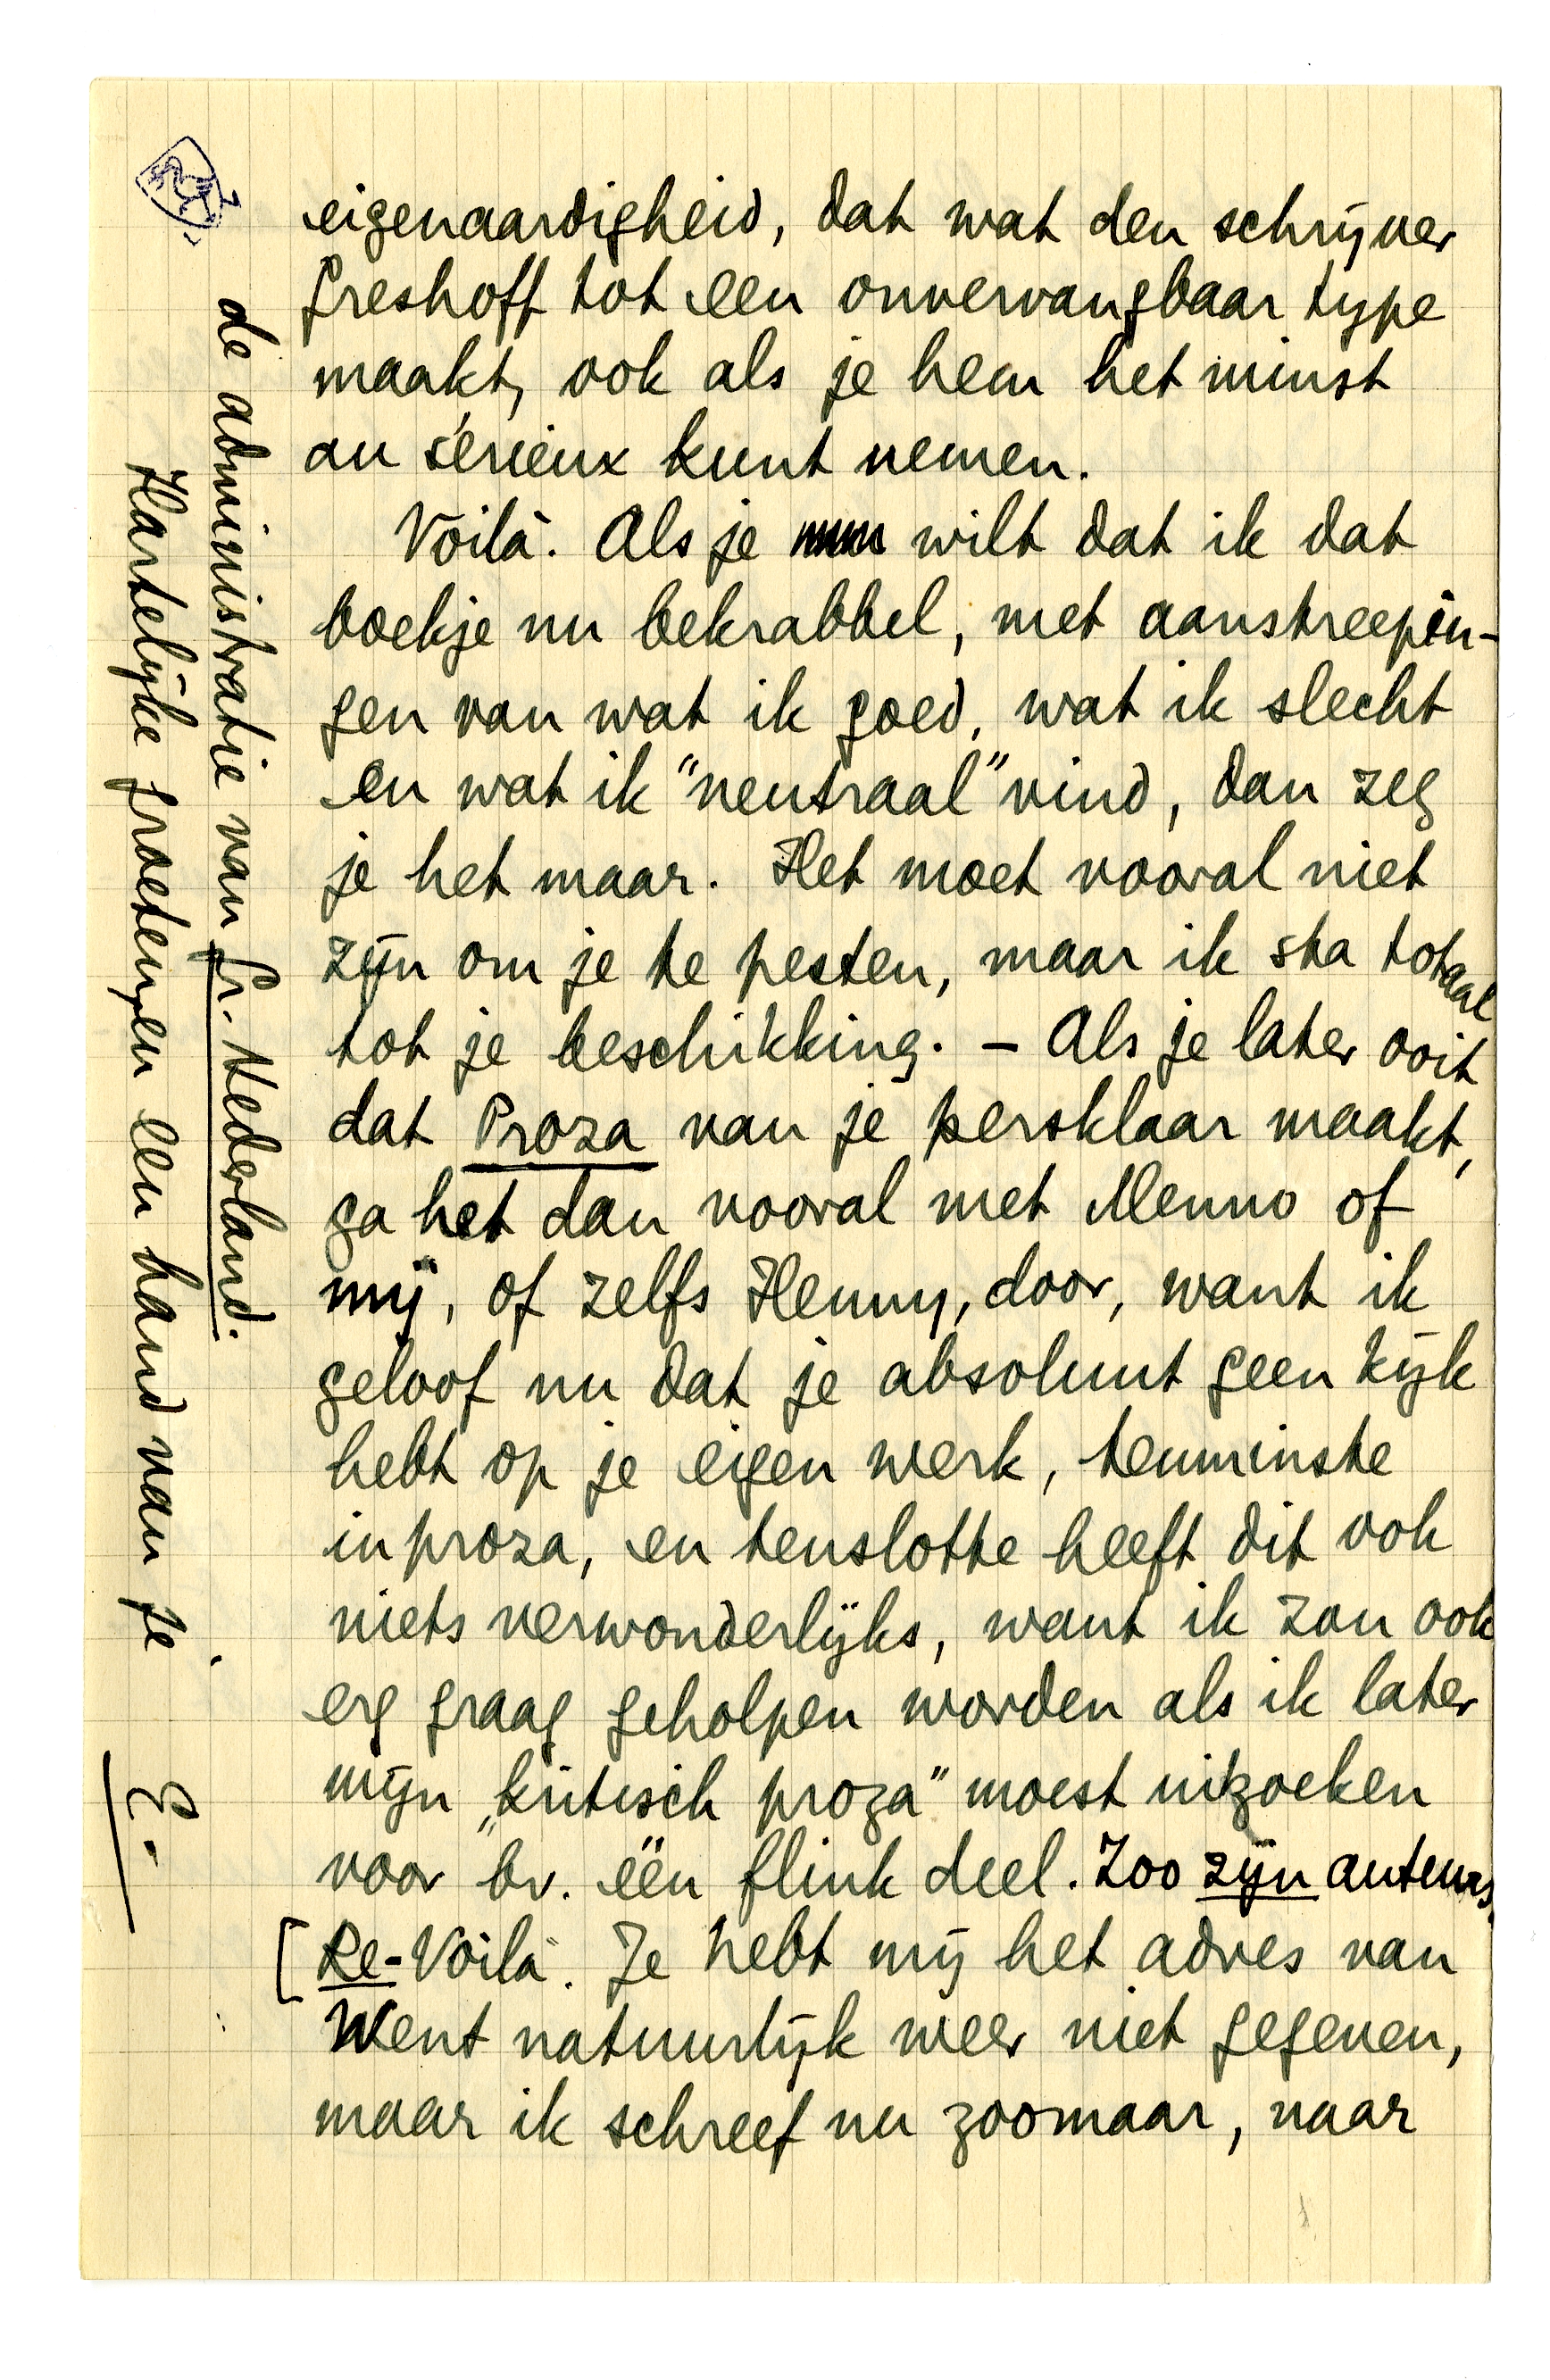 eigenaardigheid, dat wat den schrijver
Greshoff tot een onvervangbaar type
maakt, ook als je hem het minst
au sérieux kunt nemen.
Voilà. Als je wilt dat ik dat
boekje nu bekrabbel, met aanstreepin-
gen van wat ik goed, wat ik slecht
en wat ik "neutraal" vind, dan zeg
je het maar. Het moet vooral niet
zijn om je te pesten, maar ik sta totaal
tot je beschikking. — Als je later ooit
dat Proza van je persklaar maakt,
ga het dan vooral met Menno of
mij, of zelfs Henny, door, want ik
geloof nu dat je absoluut geen kijk
hebt op je eigen werk, tenminste
in proza, en tenslotte heeft dit ook
niets verwonderlijks, want ik zou ook
erg graag geholpen worden als ik later
mijn „kritisch proza" moest uitzoeken
voor bv. één flink deel. Zoo zijn auteurs.
[Re-Voilà. Je hebt mij het adres van
Went natuurlijk weer niet gegeven,
maar ik schreef nu zoomaar, naar
de administratie van Gr. Nederland.
Hartelijke groeten, en een hand van je
E.